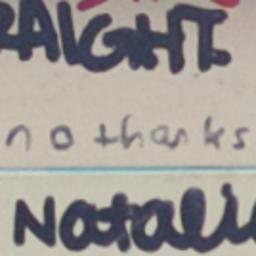 RAIGHT
no thanks
Natali